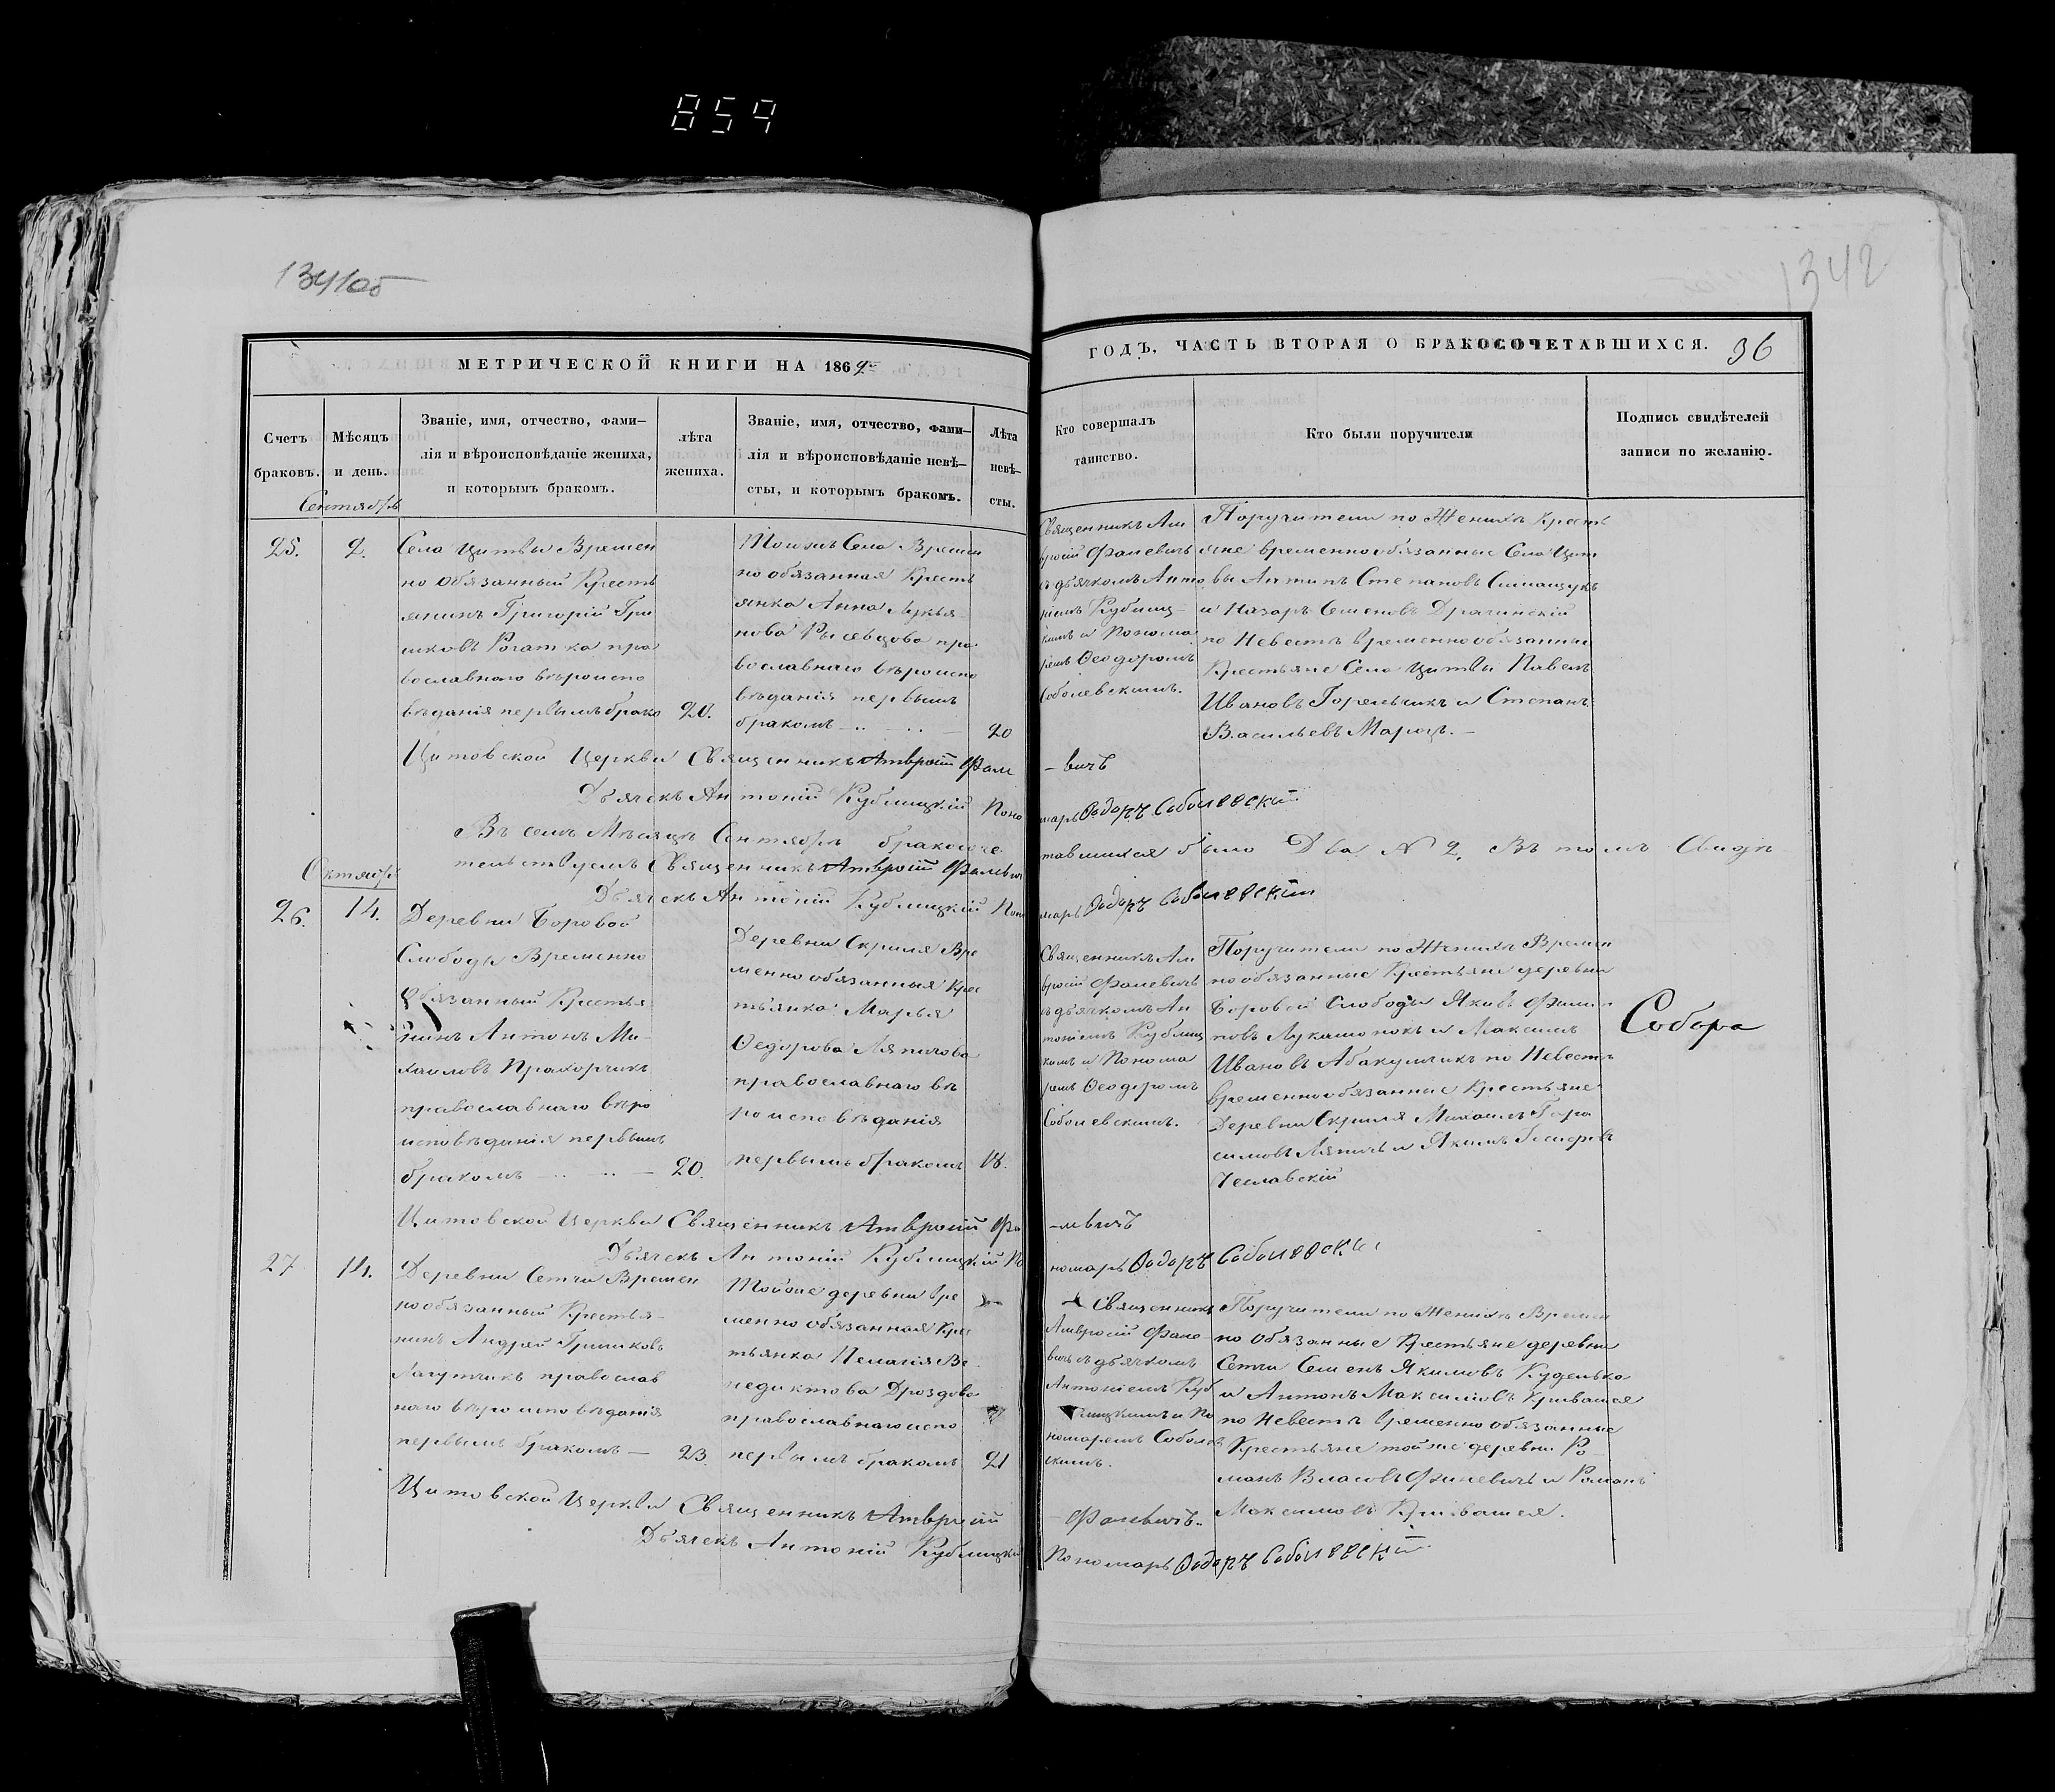 859
1341об
1342
МЕТРИЧЕСКОЙ КНИГИ НА 1862
ГОДЪ, ЧАСТЬ ВТОРАЯ О БРАКОСОЧЕТАВШИХСЯ.
36
Счетъ
браковъ.
Мѣсяцъ
и день.
Званіе, имя, отчество, фами—
лія и вѣроисповѣданіе жениха,
и которымъ бракомъ.
лѣта
жениха.
Званіе, имя, отчество, фами—
лія и вѣроисповѣданіе невѣ—
сты, и которымъ бракомъ.
Лѣта
невѣ—
сты.
Кто совершалъ
таинство.
Кто были поручители
Подпись свидѣтелей
записи по желанію.
Сентябрь
25.
2.
Села Цитвы Времен
но обязанный Кресть
янинъ Григорій Гри
шковъ Рогатка пра
вославнаго вѣроиспо
вѣданія первымъ брако
20.
Тогожъ Села Времен
но обязанная Кресть
янка Анна Лукья
нова пра
вославнаго вѣроиспо
вѣданія первымъ
бракомъ
20
Священникъ Ам
вросій Фалевичъ
съ дьячкомъ Анто
ніемъ Кублиц
кимъ и Понома
ремъ Ѳеодоромъ
Соболевскимъ.
Поручители по Женихѣ Кресть
яне временнообязанные Села Цит
вы Антипъ Степановъ
и Назаръ Семеновъ Драчинскій
по Невестѣ временнообязанные
Крестьяне Села Цитвы Павелъ
Ивановъ Горельчикъ и Степанъ
Васильевъ Мароцъ.
Цитовской Церкви Священникъ Амвросій Фале
-вичъ
Дьячекъ Антоній Кублицкій Поно
марь Ѳодоръ Соболевскій
Въ семъ Мѣсяцѣ Сентябрѣ бракосоче
тавшихся было Два № 2, Въ томъ Свидѣ
тельствуемъ Священникъ Амвросій Фалевич
Октябрь
Дьячекъ Антоній Кублицкій Поно
марь Ѳодоръ Соболевскій
26.
14.
Деревни Боровой
Слободы Временно
Обязанный Крестья
нинъ Антонъ Ми
хаиловъ Прахорчикъ
православнаго вѣро
исповѣданія первымъ
бракомъ
20.
Деревни Скриля Вре
менно обязанныя Крес
тьянка Марья
Ѳедорова Ляпичова
православнаго вѣ
роисповѣданія
первымъ бракомъ
18.
Священникъ Ам
вросій Фалевичъ
съ дьячкомъ Ан
тоніемъ Кублиц
кимъ и Понома
ремъ Ѳеодоромъ
Соболевскимъ.
Поручители по Женихѣ Времен
но обязанные Крестьяне деревни
Боровой Слободы Яковъ Филип
повъ Лукашонокъ и Максимъ
Ивановъ Абакумчикъ по Невестѣ
временнообязанные Крестьяне
Деревни Скриля Михаилъ Гара
симовъ Ляпичъ и Якимъ
Чеславскій
Собора
Цитовской Церкви Священникъ Амвросій Фа
-левичъ
Дьячекъ Антоній Кублицкій По
номарь Ѳодоръ Соболевскій
27
14.
Деревни Сетчи Времен
нообязанный Крестья
нинъ Андрей Гришковъ
Лагутчикъ православ
наго вѣроисповѣданія
первымъ бракомъ — 23.
Тойже деревни Вре
менно обязанная Крес
тьянка Пелагія Ве
недиктова Дроздова
православнаго испо
первымъ бракомъ
21
Священникъ
Амвросій Фале
вичъ съ дьячкомъ
Антоніемъ Куб
лицкимъ и По
номаремъ Соболев
скимъ.
Поручители по Женихѣ Времен
но обязанные Крестьяне деревни
Сетчи Семенъ Якимовъ Куделько
и Антонъ Максимовъ Кривошея
по Невестѣ временно обязанные
Крестьяне тойже деревни Ро
манъ Власовъ Финевичъ и Романъ
Максимовъ Кривошея.
Цитовской Церкви Священникъ Амвросій
Фалевичъ.
Дьячекъ Антоній Кублицкій
Пономарь Ѳодоръ Соболевскій